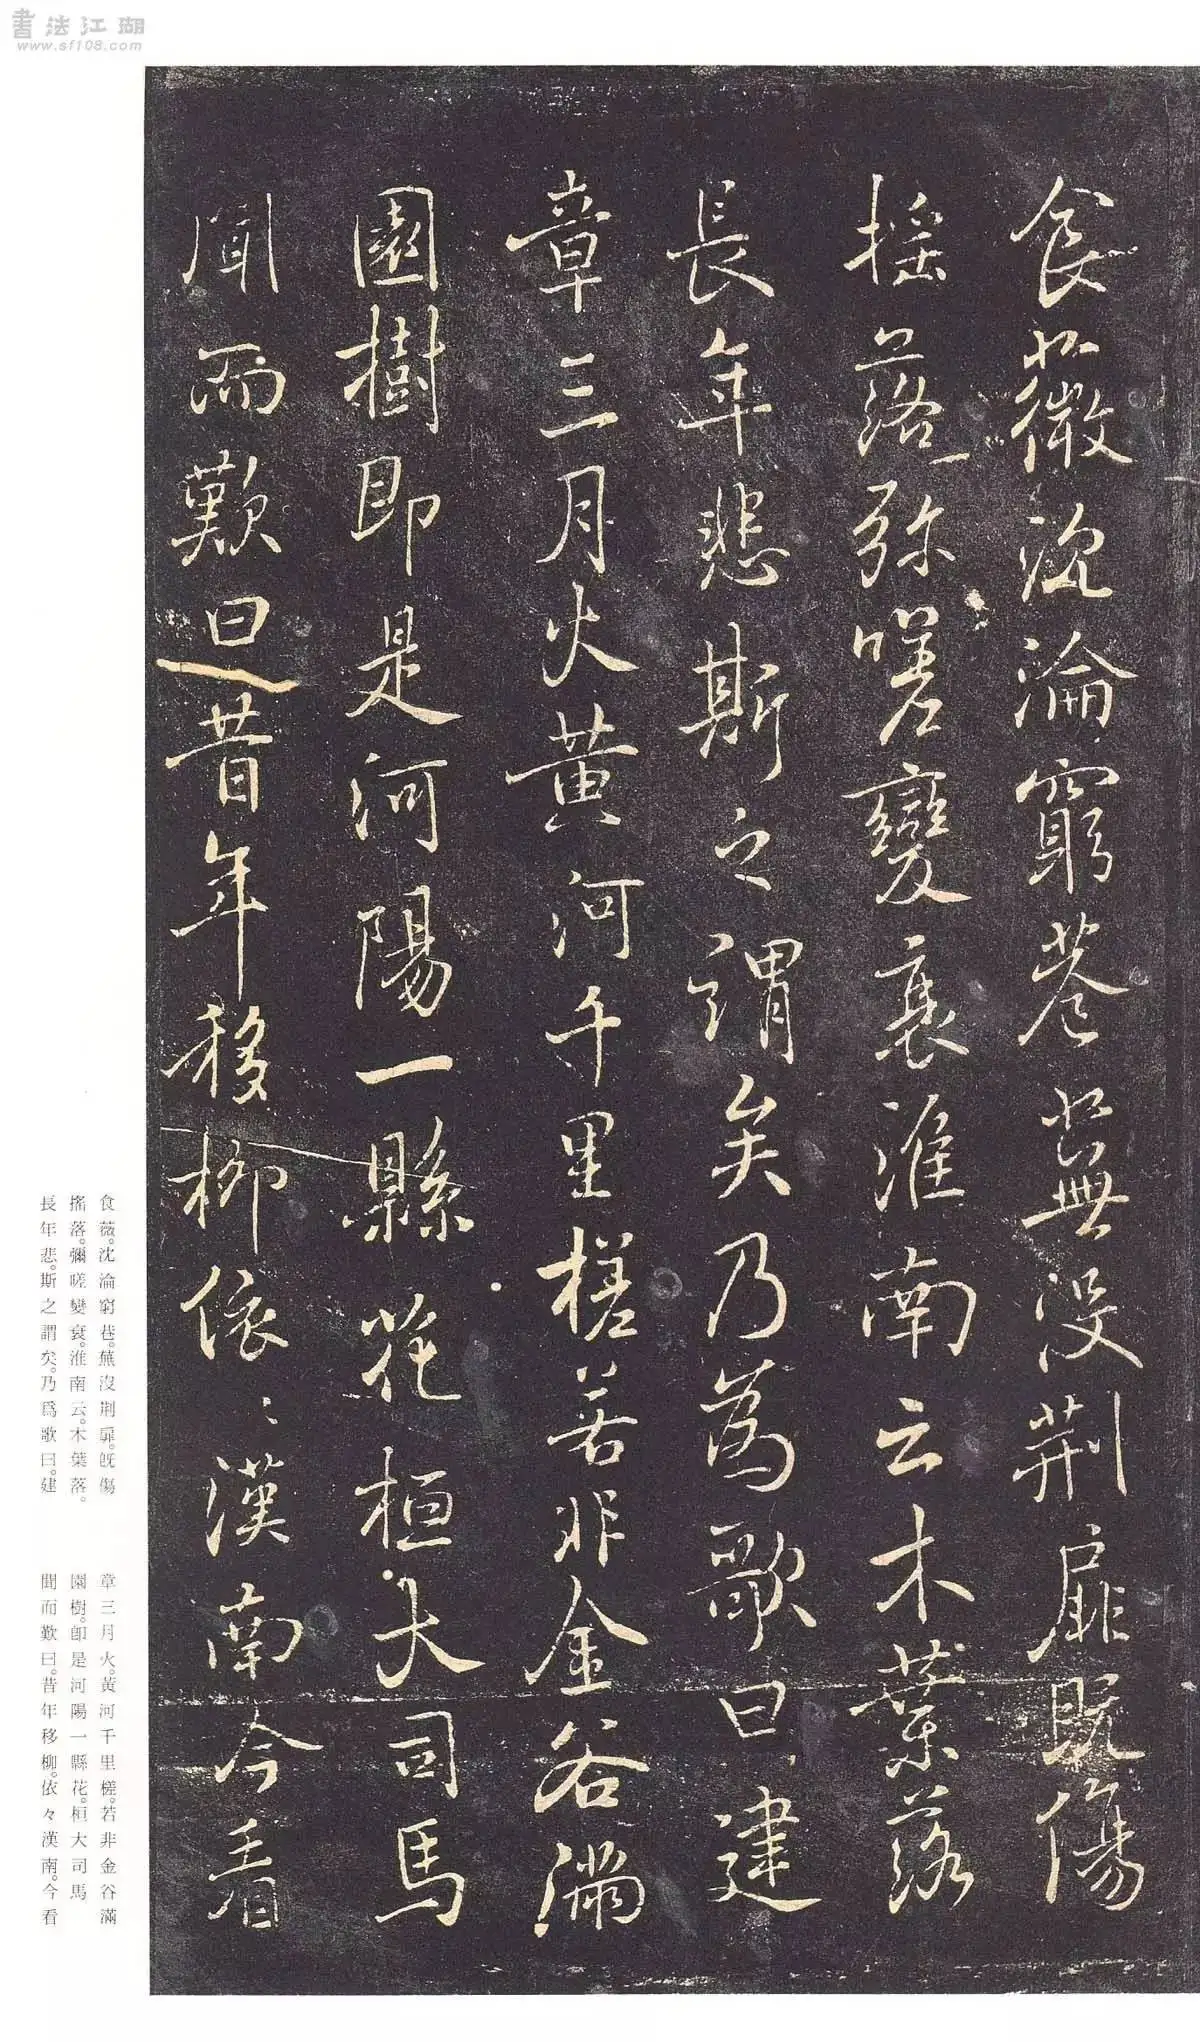 書法江湖
www.sf108.com
食薇沈淪窮巷蕪没荆扉既傷
摇落弥嗟變衰淮南云木葉落
長年悲斯之謂矣乃為歌曰建
章三月火黄河千里槎若非金谷滿
園樹即是河陽一縣花桓大司馬
聞而歎曰昔年移柳依々漢南今看
食薇。沈淪窮巷。蕪沒荆扉。旣傷
搖落。彌嗟變衰。淮南云。木葉落。
長年悲。斯之謂矣。乃爲歌曰。建
章三月火。黃河千里槎。若非金谷滿
園樹。卽是河陽一縣花。桓大司馬
聞而歎曰。昔年移柳。依々漢南。今看